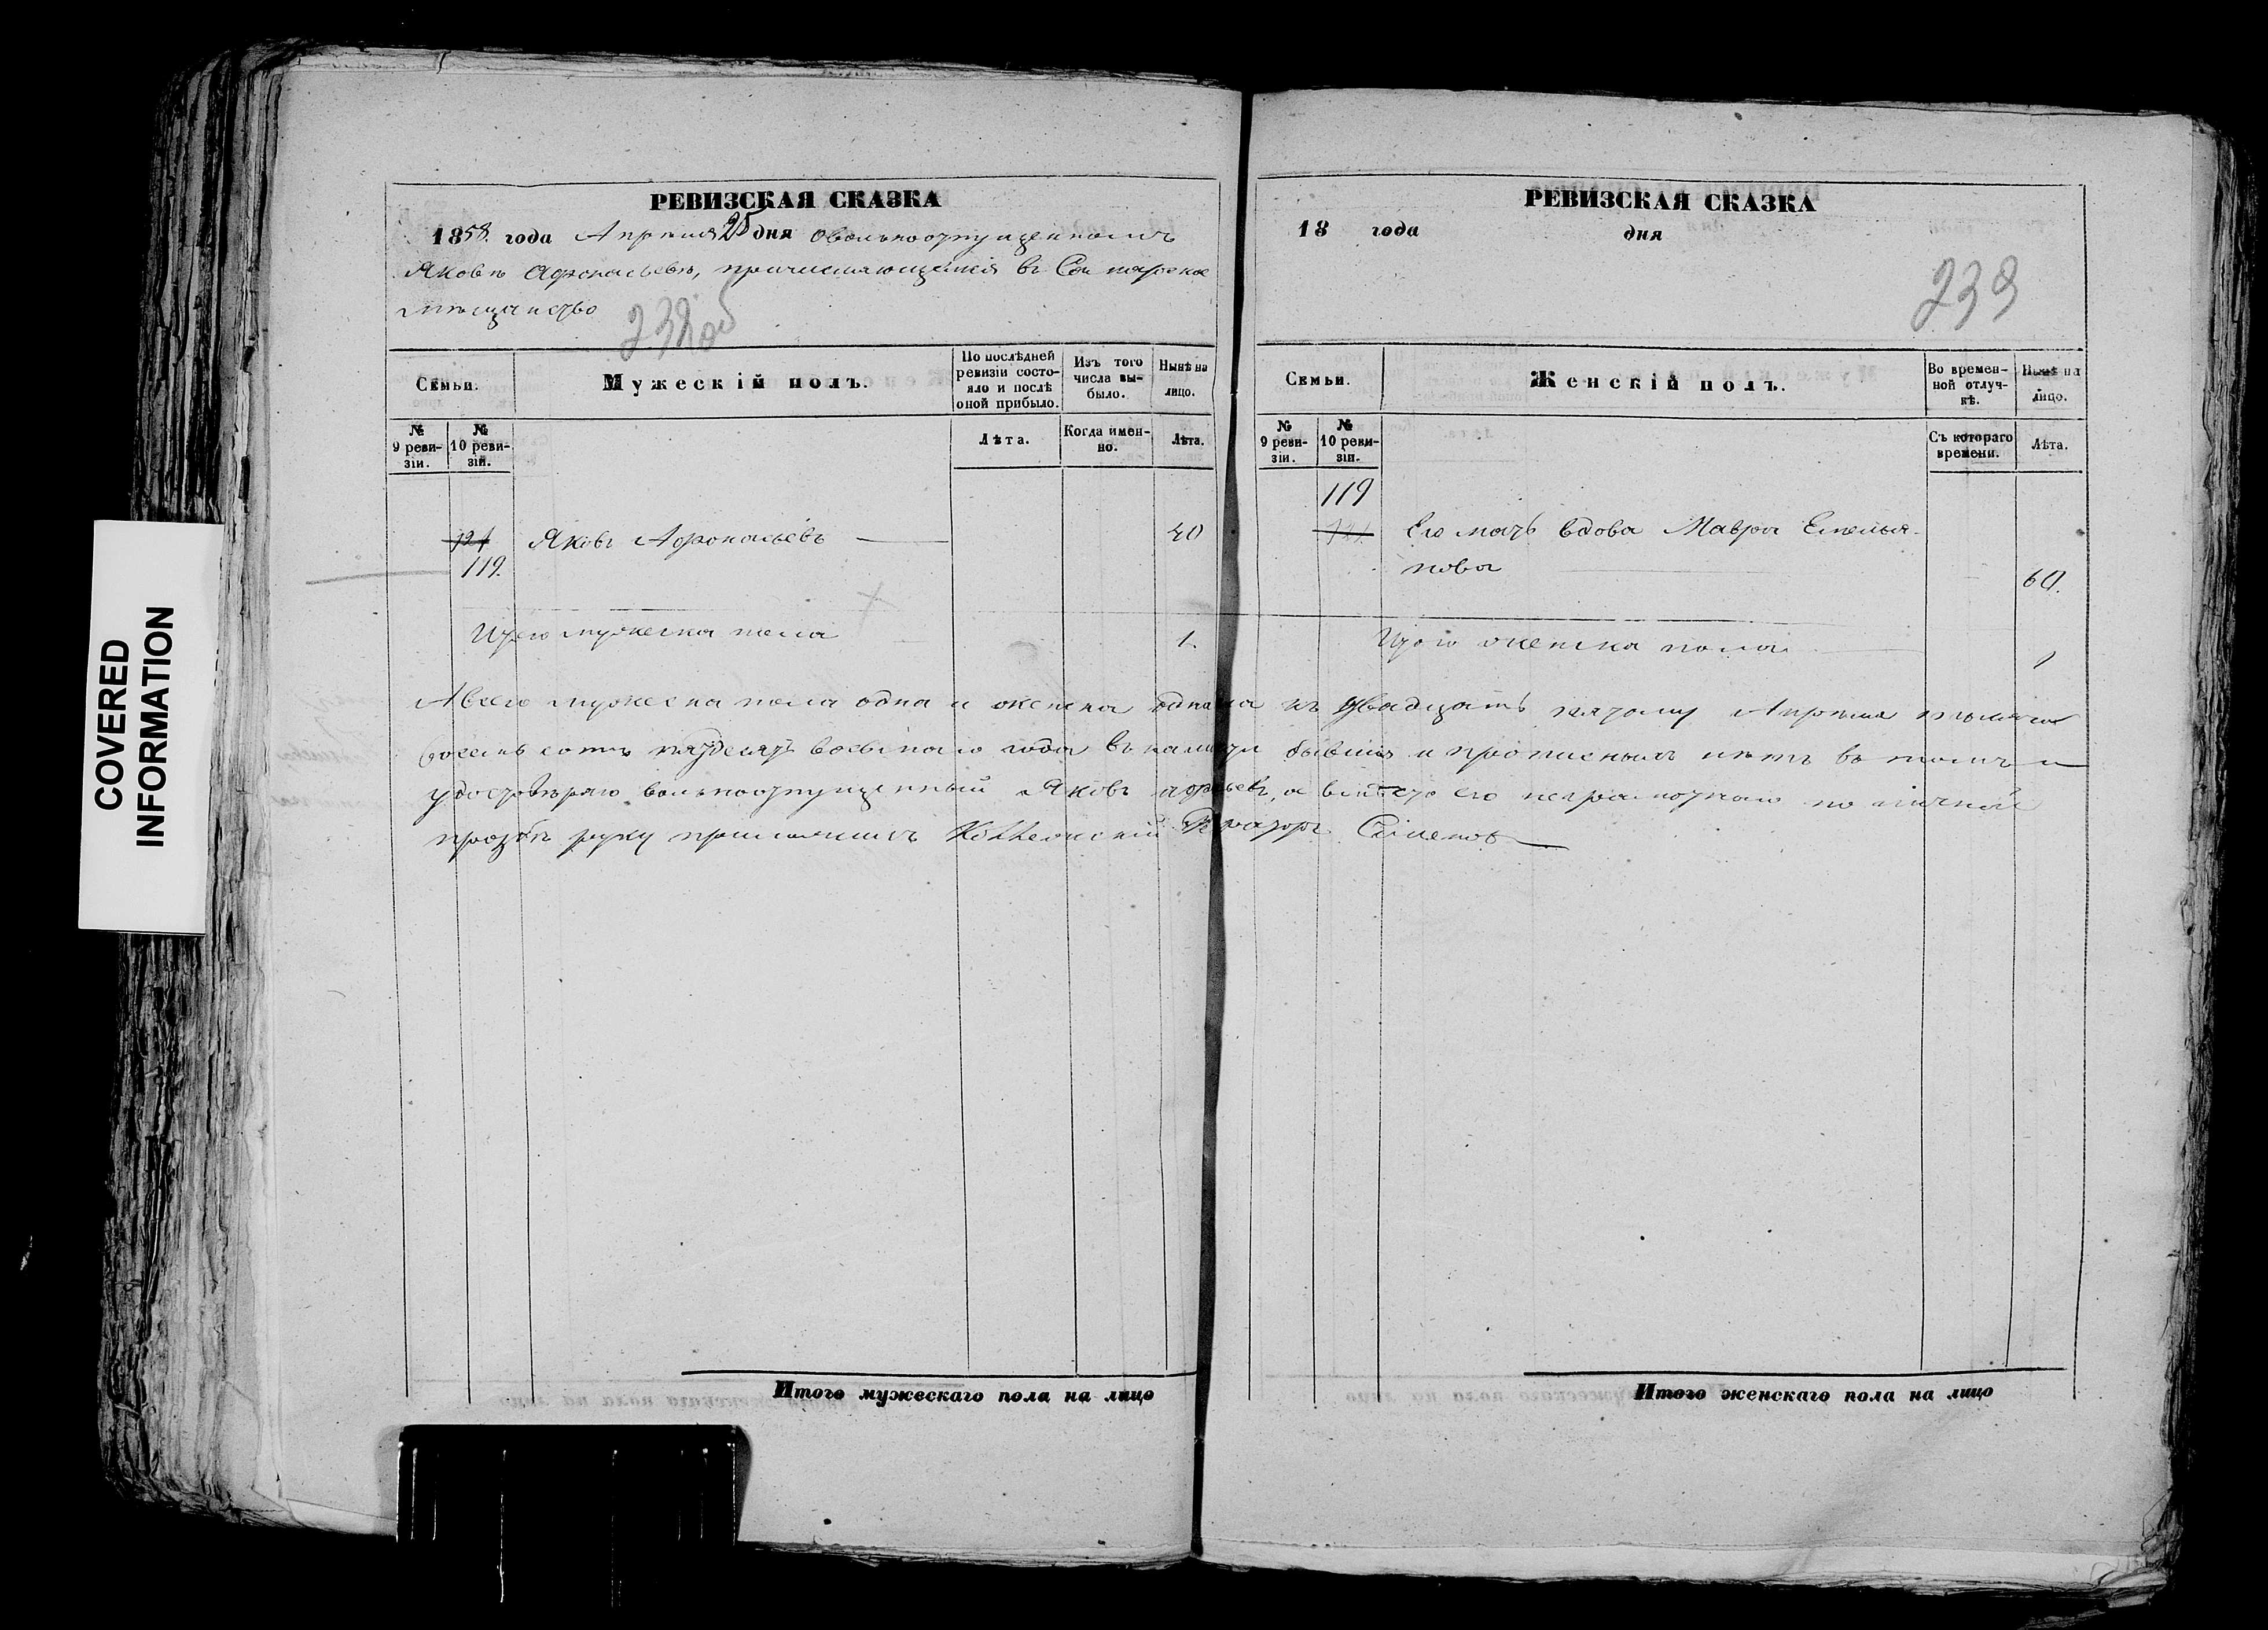 COVERED
INFORMATION
РЕВИЗСКАЯ СКАЗКА
1858. года Апреля 25 дня о вольноотпущенномъ
Яковѣ Афонасьевѣ, причисляющемся въ
мѣщанство
232об
Семьи.
Мужескій полъ.
По послѣдней ревизіи состояло и послѣ оной прибыло.
Изъ того числа выбыло.
Нынѣ на лицо.
№ 9 ревизіи.
№ 10 ревизій.
Лѣта.
Когда именно.
Лѣта.
121 Яковъ Афонасьевъ 40
119.
Итого мужеска пола 1.
РЕВИЗСКАЯ СКАЗКА
18 года дня
239
Семьи.
Женскій полъ.
Во временной отлучкѣ.
Нынѣ на лицо.
№ 9 ревизіи.
№ 10 ревизіи.
Съ котораго времени.
Лѣта.
119
121 Его мать вдова Мавра Емелья-
нова 60.
Итого женска пола 1
А всего мужеска пола одна и женска одна къ двадцать пятому Апреля тысяча
восемь сотъ пятьдесятъ восьмаго года въ бывшія и прописныхъ нѣтъ въ томъ
удостовѣряю вольноотпущенный Яковъ а вмѣсто его неграмотнаго по личной
прозбѣ руку приложилъ
Итого мужескаго пола на лицо
Итого женскаго пола на лицо